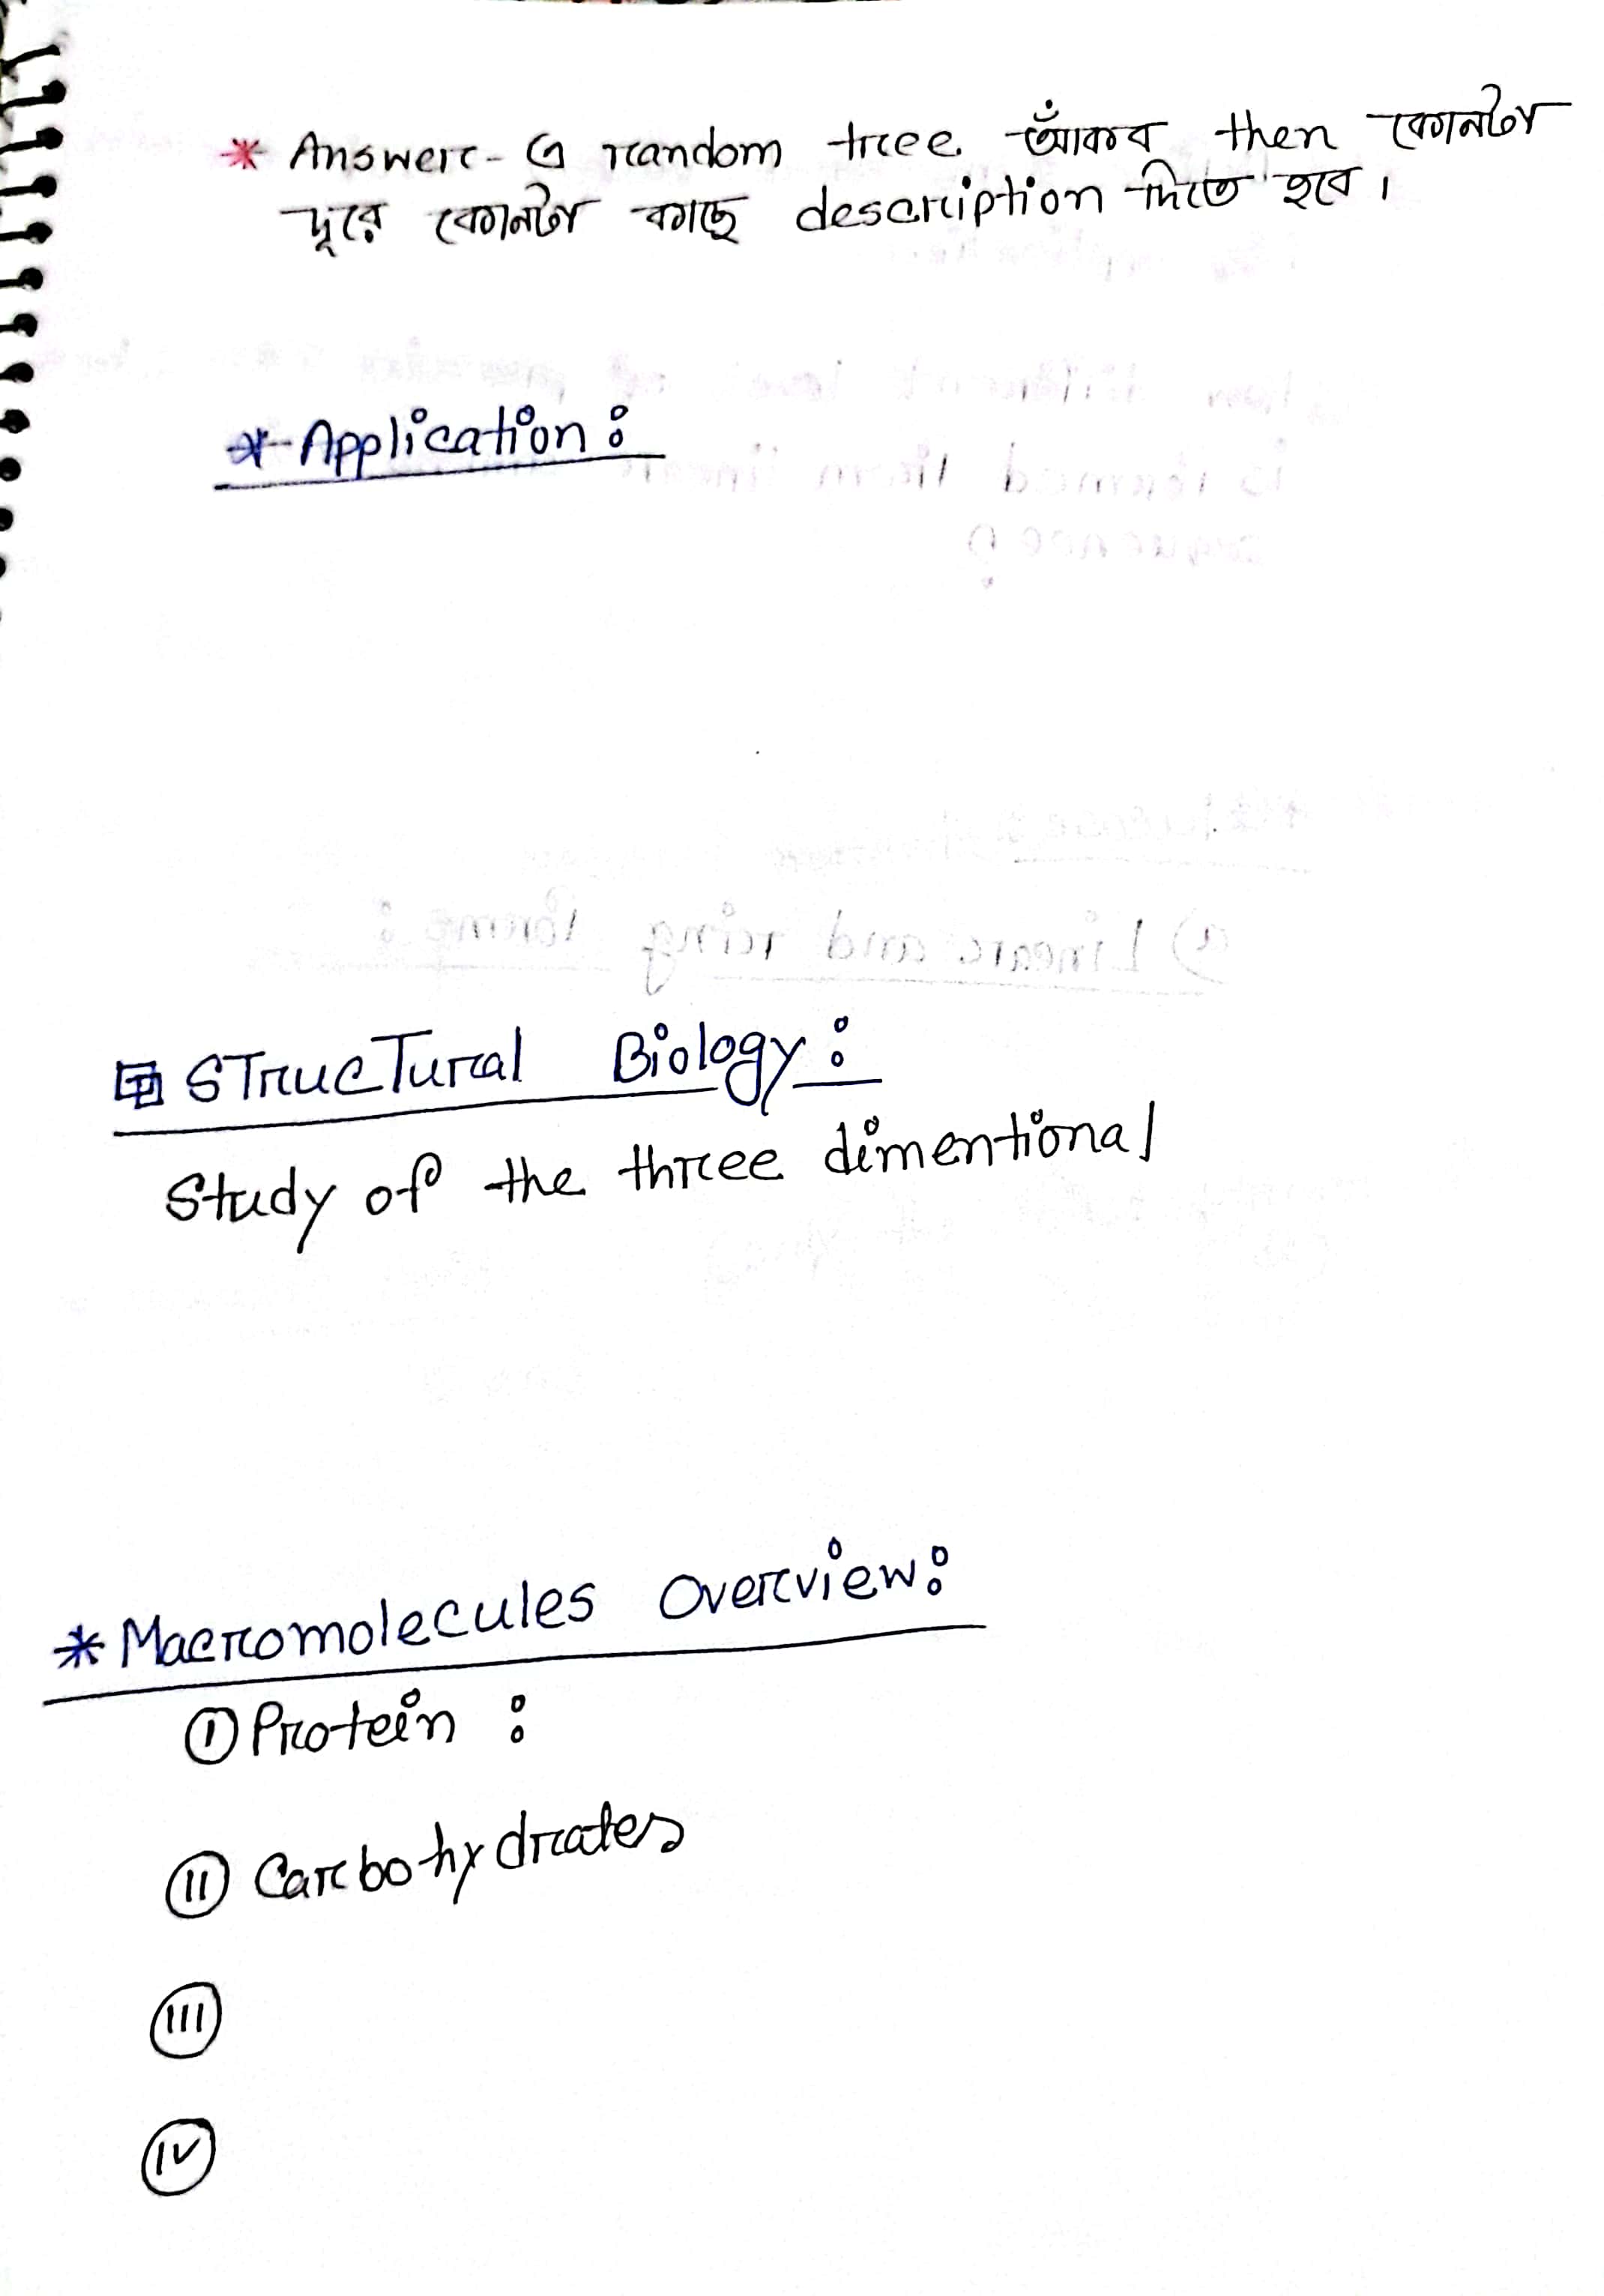 * Answer- এ random tree আঁকব then কোনটা
দূরে কোনটা কাছে description দিতে হবে।
* Application:
Structural Biology:
Study of the three dimentional
* Macromolecules Overview:
(I) Protein :
(II) Carbohydrates
(III)
(IV)